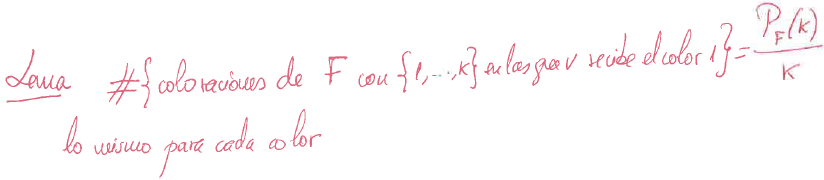 Lema #{coloraciones de F con {1,...,K} en las que v recibe el color 1} = P_F(K)/K
lo mismo para cada color